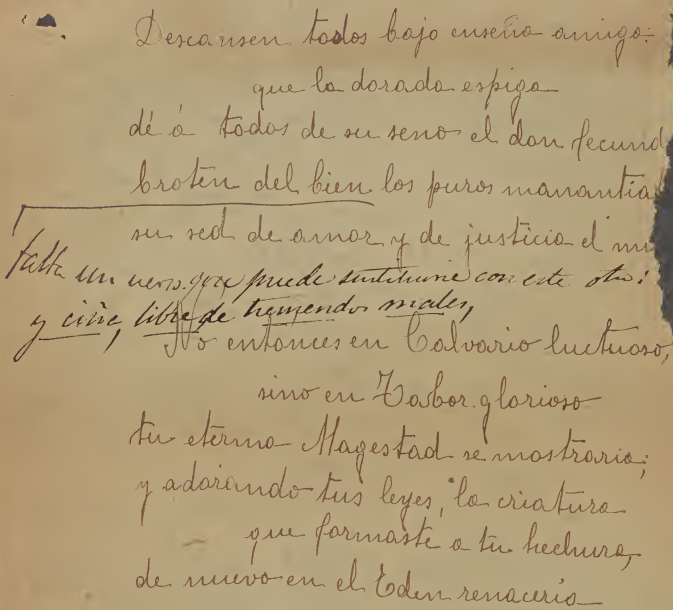 Descansen todos bajo enseña amiga:
que la dorada espiga
dé á todos de su seno el don fecund
broten del bien los puros manantia
su sed de amor y de justicia el mu
falta un verso que puede sustituirse con este otro:
y ciñe, libre de tremendos males,
No entonces en Calvario luctuoso,
sino en Tabor glorioso
tu eterna Magestad se mostraria;
y adorando tus leyes, la criatura
que formaste a tu hechura,
de nuevo en el Eden renaceria